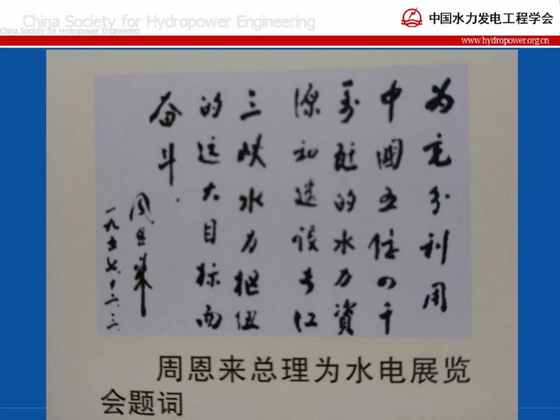 China Society for Hydropower Engineering
China Society for Hydropower Engineering
中国水力发电工程学会
www.hydropower.org.cn
为充分利用
中國五億四千
萬瓩的水力資
源和建設長江
三峡水力枢纽
的远大目标而
奋斗.
周恩来
一九五七.十二.三
周恩来总理为水电展览
会题词